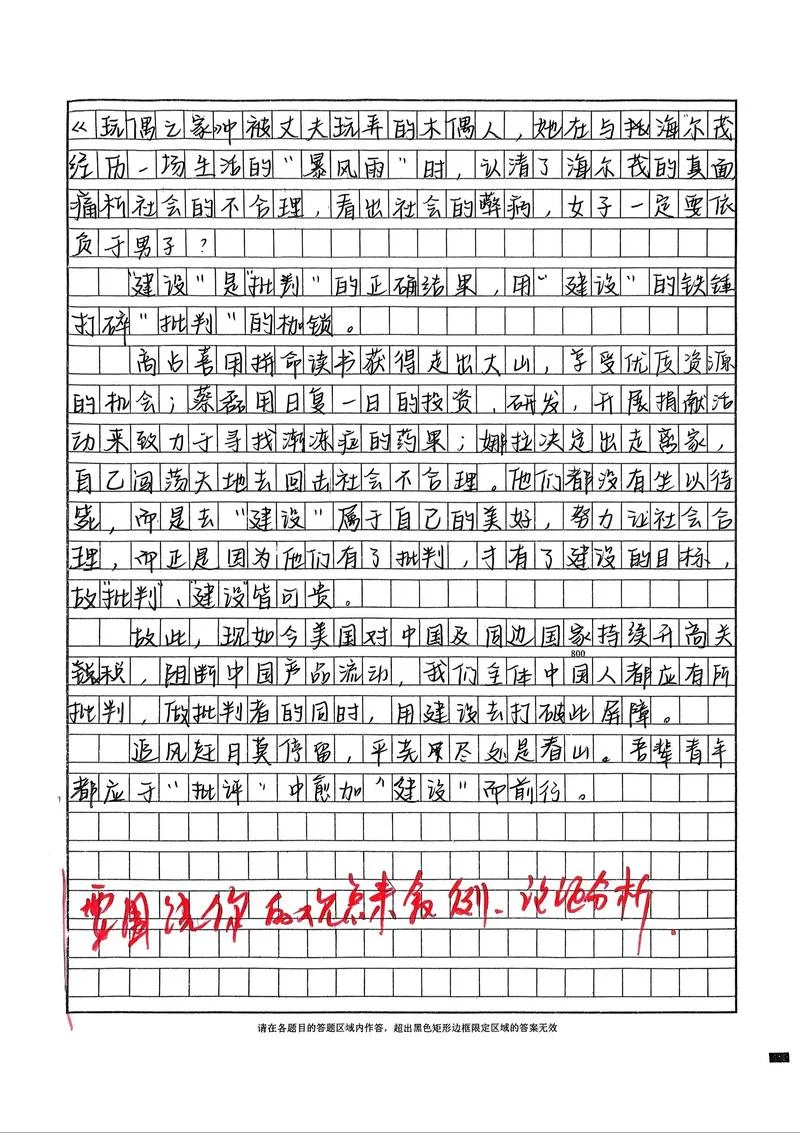 《玩偶之家》中被丈夫玩弄的木偶人，她在与海尔茂
经历一场生活的“暴风雨”时，认清了海尔茂的真面
痛析社会的不合理，看出社会的弊病，女子一定要依
负于男子？
“建设”是“批判”的正确结果，用“建设”的铁锤
打碎“批判”的枷锁。
高占喜用拼命读书获得走出大山，享受优质资源
的机会；蔡磊用日复一日的投资、研发，开展捐献活
动来致力于寻找渐冻症的药果；娜拉决定出走离家，
自己闯荡天地去回击社会不合理。他们都没有坐以待
毙，而是去“建设”属于自己的美好，努力让社会合
理，而正是因为他们有了批判，才有了建设的目标，
故“批判”、“建设”皆可贵。
故此，现如今美国对中国及周边国家持续升高关
税，阻断中国产品流动，我们主体中国人都应有所
800
批判，做批判者的同时，用建设去打破此屏障。
追风赶月莫停留，平芜尽处是春山。吾辈青年
都应于“批评”中愈加“建设”而前行。
要围绕你的观点来叙例、论证分析.
请在各题目的答题区域内作答，超出黑色矩形边框限定区域的答案无效